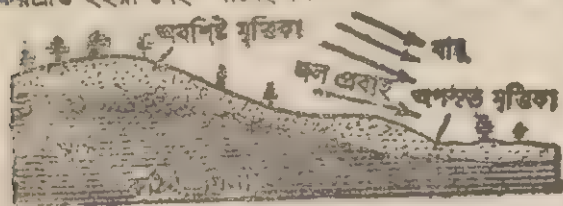 অবশিষ্ট মৃত্তিকা
বায়ু
জল প্রবাহ
অপসৃত মৃত্তিকা